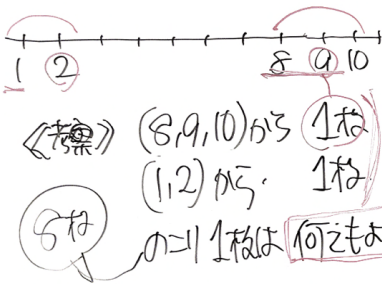 1 2 8 9 10
《考案》 (8,9,10)から 1枚
(1,2)から. 1枚
8枚
のこり1枚は 何でもよ